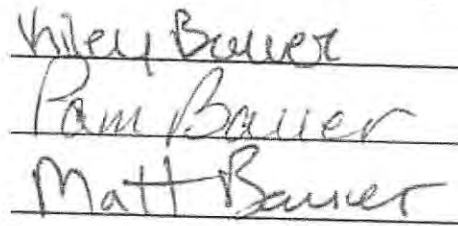 Kiley Bauer
Pam Bauer
Matt Bauer